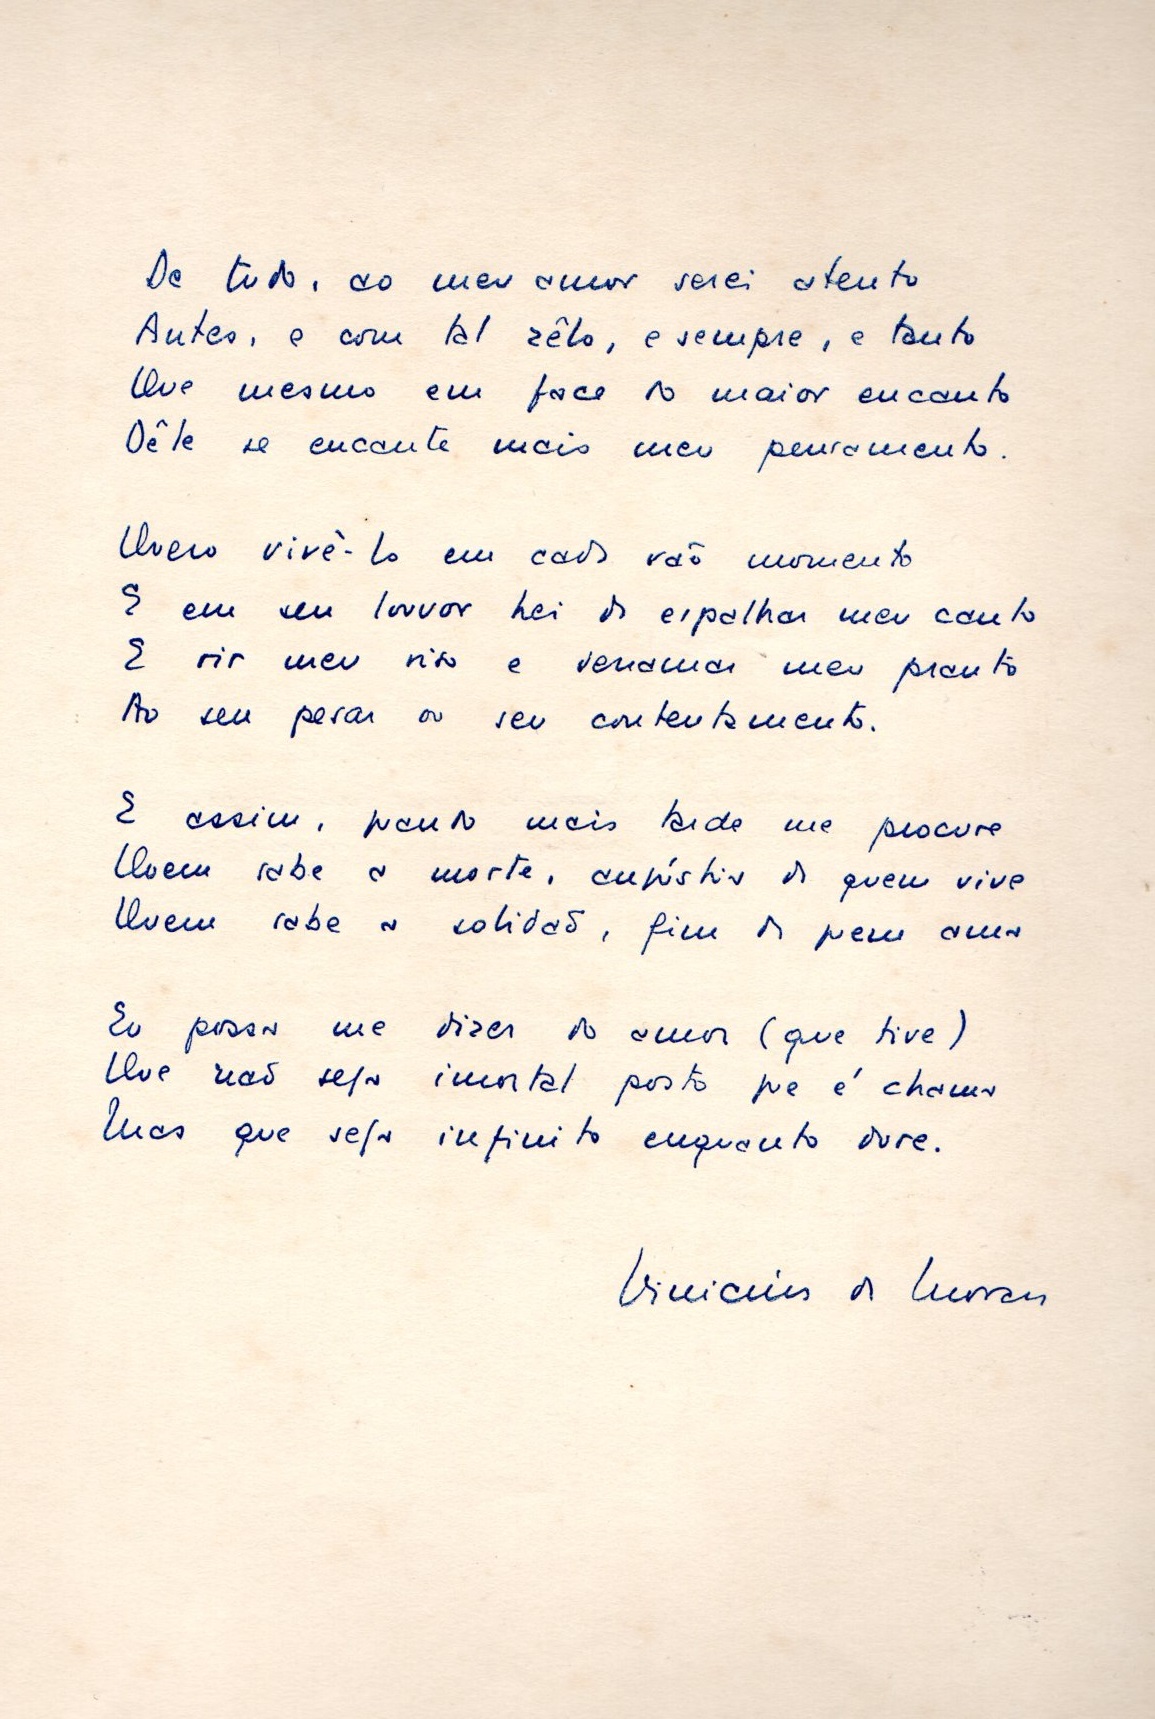 De tudo, ao meu amor serei atento
Antes, e com tal zêlo, e sempre, e tanto
Que mesmo em face do maior encanto
Dêle se encante mais meu pensamento.
Quero vivê-lo em cada vão momento
E em seu louvor hei de espalhar meu canto
E rir meu riso e derramar meu pranto
Ao seu pesar ou seu contentamento.
E assim, quando mais tarde me procure
Quem sabe a morte, angústia de quem vive
Quem sabe a solidão, fim de quem ama
Eu possa me dizer do amor (que tive)
Que não seja imortal posto que é chama
Mas que seja infinito enquanto dure.
Vinicius de Moraes